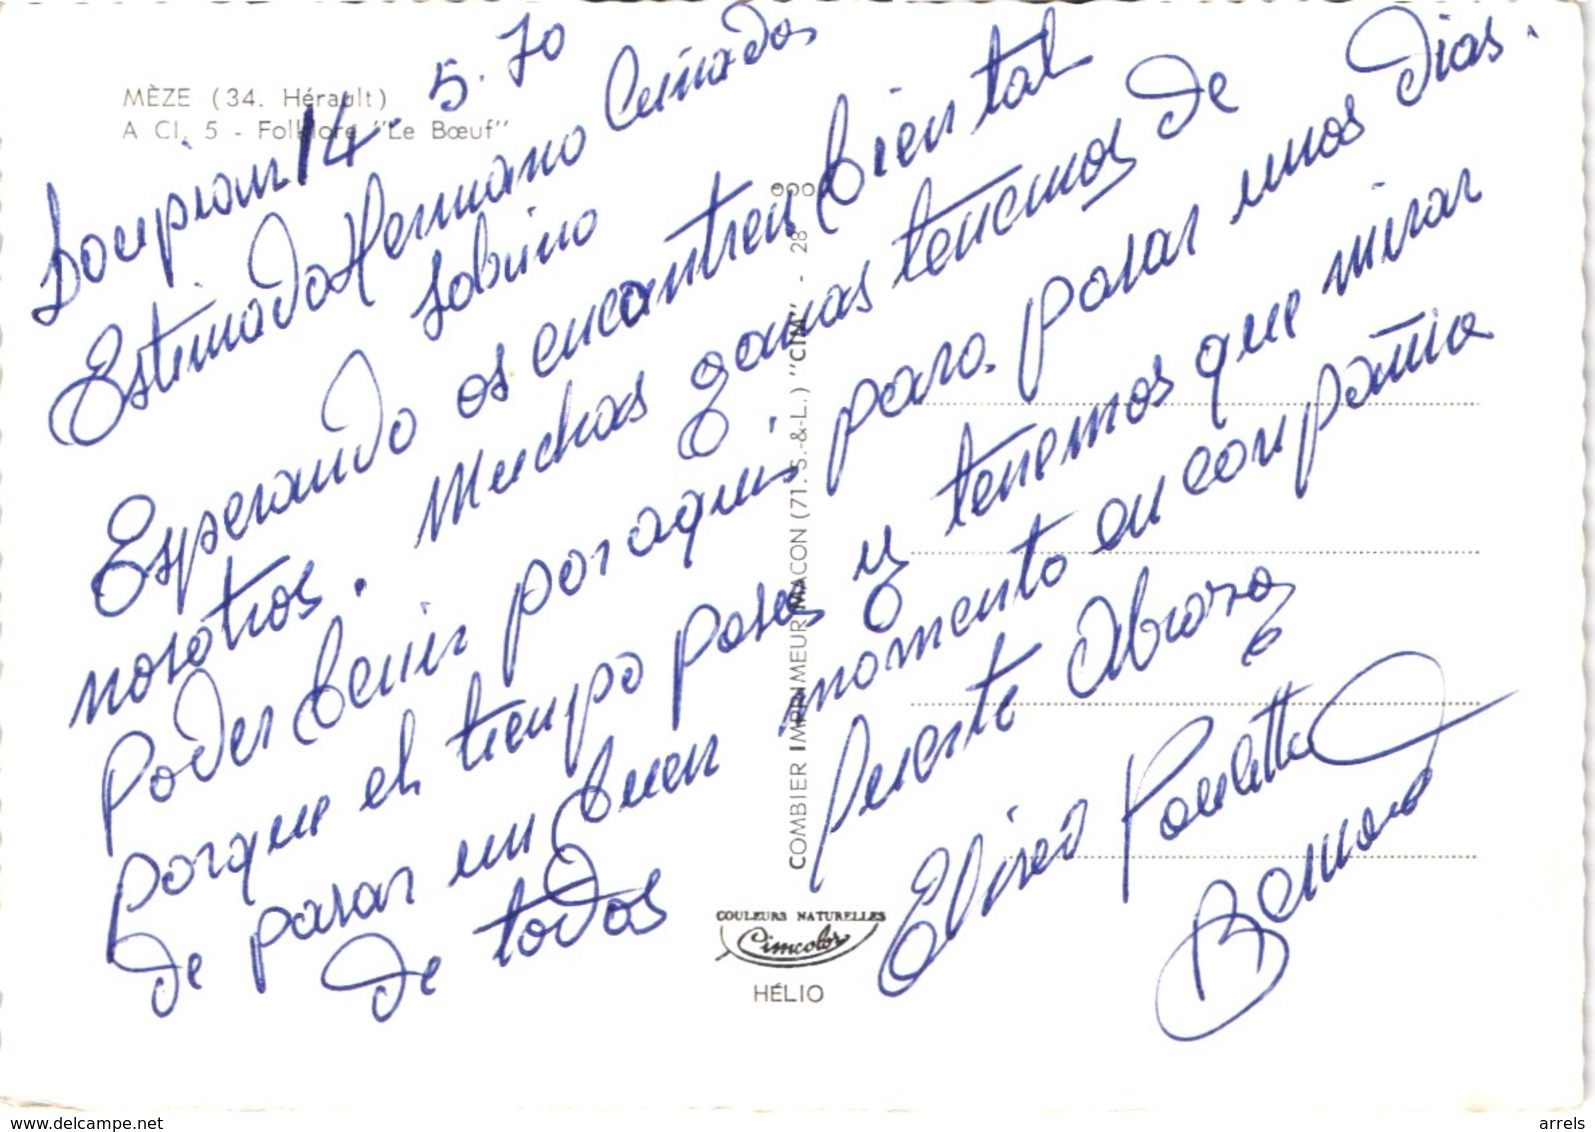 MÈZE (34. Hérault)
A CI. 5 - Folklore "Le Bœuf"
Loupian 14.5.70
Estimado Hermano Cuñada
Sobrino
Esperando os encontren bien tal
nosotros. Muchas ganas tenemos de
Poder benir por aqui para pasar unos dias.
porque el tiempo pasa y tenemos que mirar
de pasar un buen momento en compañia
de todos
fuerte abrazo
Eliseo Paulette
Bernard
COMBIER IMPRIMEUR MACON (71. S.-&-L.) "CIM" - 28
COULEURS NATURELLES
Cimcolor
HÉLIO
www.delcampe.net
arrels